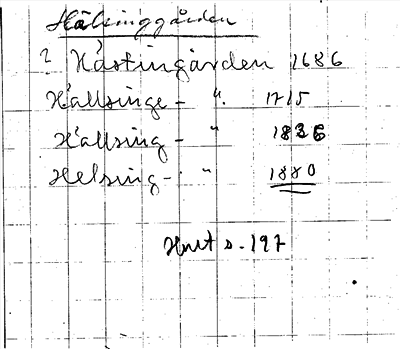 Hälsinggården
? Hästingården 1686
Hällsinge - ". 1715
Hällsing - " 1836
Helsing - " 1880
s. 197